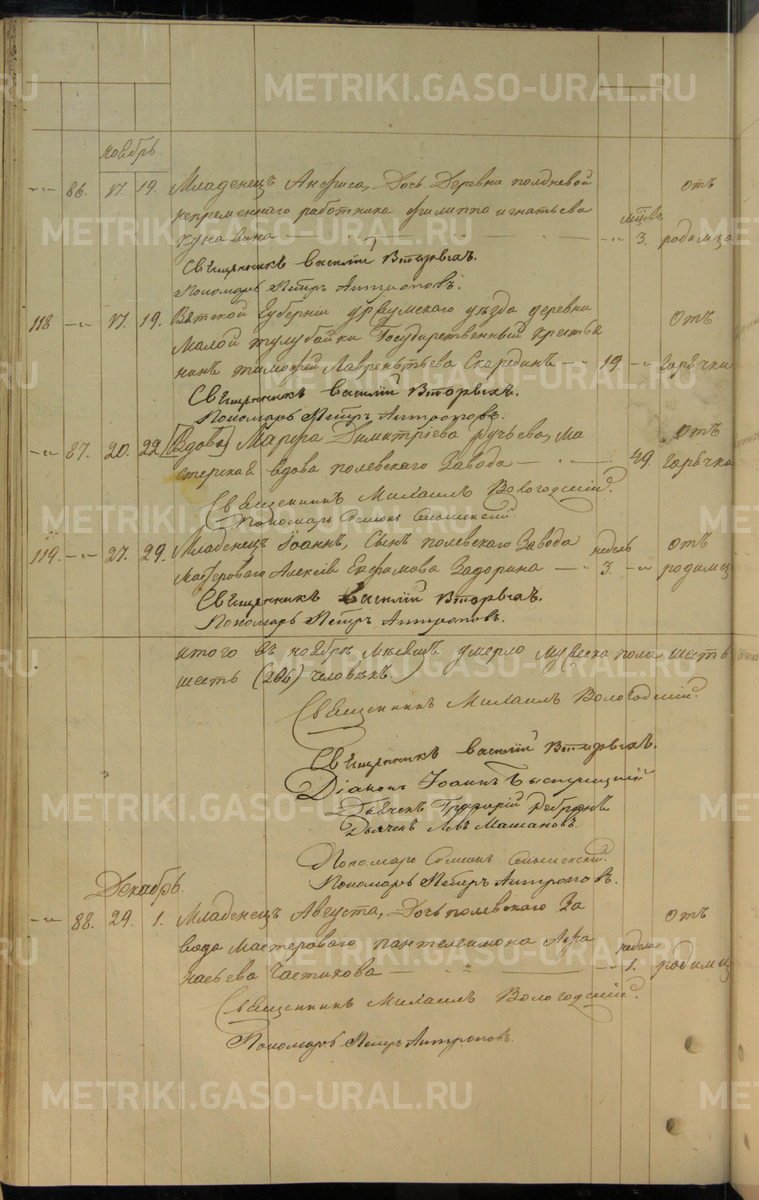 Ноябрь
86. 17. 19. Младенецъ Анфиса, Дочь Деревни полдневой отъ
непременнаго работника филиппа игнатьева мѣсяцъ
кунавина 3. родимца
Священникъ василій Вторыхъ.
Пономарь Петръ Антроповъ.
118 17. 19. Вятской Губерніи уржумскаго уѣзда деревни отъ
малой тулубайки Государственный крестья
нинъ тимофей Лаврентьева Скарединъ 19. горѣчки
Священникъ василій Вторыхъ.
Пономарь Петръ Антроповъ.
87. 20. 22. [Вдова] Марфа Димитріева Ручьева, ма отъ
стерская вдова полевскаго завода 49. горѣчки
Священникъ Михаилъ Вологодскій.
Пономарь Симіонъ
119. 27. 29. Младенецъ Іоаннъ, Сынъ полевскаго Завода недель отъ
мастероваго Алексія Ефимова Задорина 3. родимц
Священникъ василій Вторыхъ.
Пономарь Петръ Антроповъ.
итого въ ноябрѣ месяцѣ умерло мужеска пола шесть
шесть человѣкъ.
Священникъ Михаилъ Вологодскій.
Священникъ василій Вторыхъ.
Діаконъ Іоаннъ
Дьячекъ Григорій
Дьячекъ Левъ Машановъ.
Пономарь Симіонъ
Пономарь Петръ Антроповъ.
Декабрь.
88. 29. 1. Младенецъ Августа, Дочь полевскаго За отъ
вода мастероваго пантелеимона Афа неделя
насьева Частикова 1. родимц
Священникъ Михаилъ Вологодскій.
Пономарь Петръ Антроповъ.
METRIKI.GASO-URAL.RU